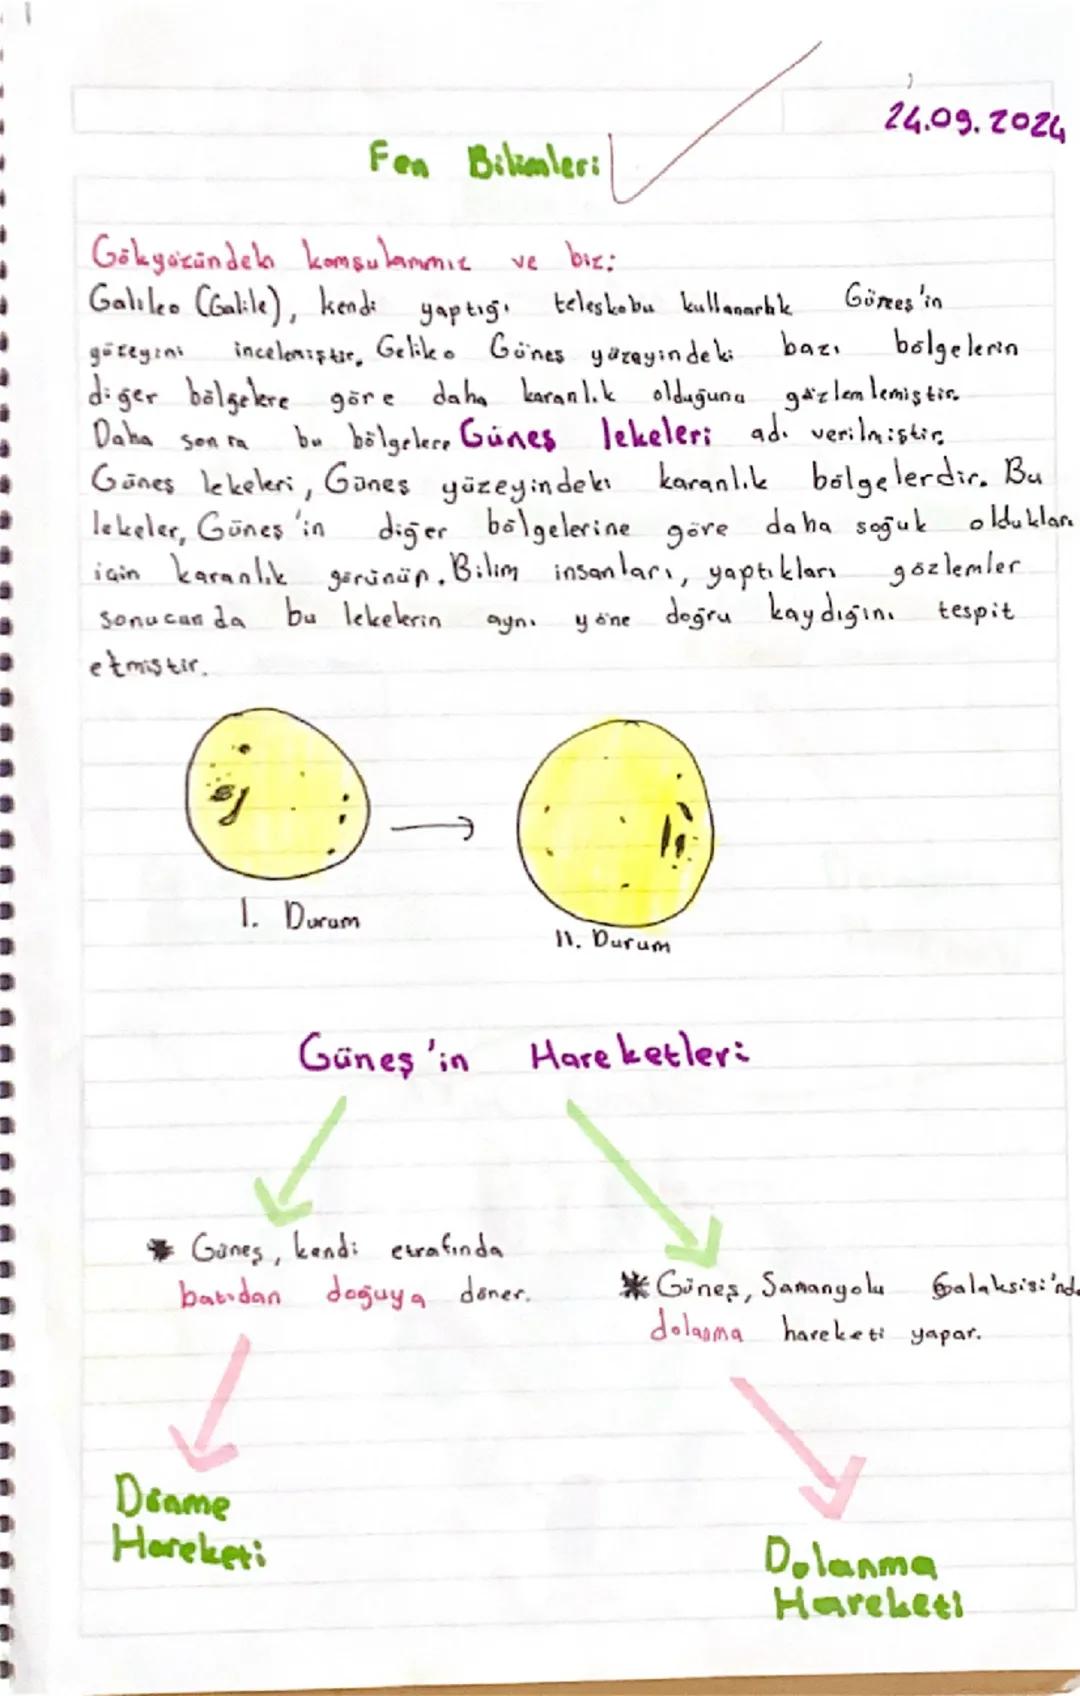 24.09.2024
Fen Bilimleri
Gökyüzündeki komşularımız ve biz:
Galileo (Galile), kendi yaptığı teleskobu kullanarak Güneş'in
yüzeyini incelemiştir. Galileo Güneş yüzeyindeki bazı bölgelerin
diğer bölgelere göre daha karanlık olduğunu gözlemlemiştir.
Daha sonra bu bölgelere Güneş lekeleri adı verilmiştir.
Güneş lekeleri, Güneş yüzeyindeki karanlık bölgelerdir. Bu
lekeler, Güneş'in diğer bölgelerine göre daha soğuk oldukları
için karanlık görünür. Bilim insanları, yaptıkları gözlemler
sonucunda bu lekelerin aynı yöne doğru kaydığını tespit
etmiştir.
I. Durum
II. Durum
Güneş'in Hareketleri
* Güneş, kendi etrafında
batıdan doğuya döner.
* Güneş, Samanyolu Galaksisi'nde
dolanma hareketi yapar.
Dönme
Hareketi
Dolanma
Hareketi